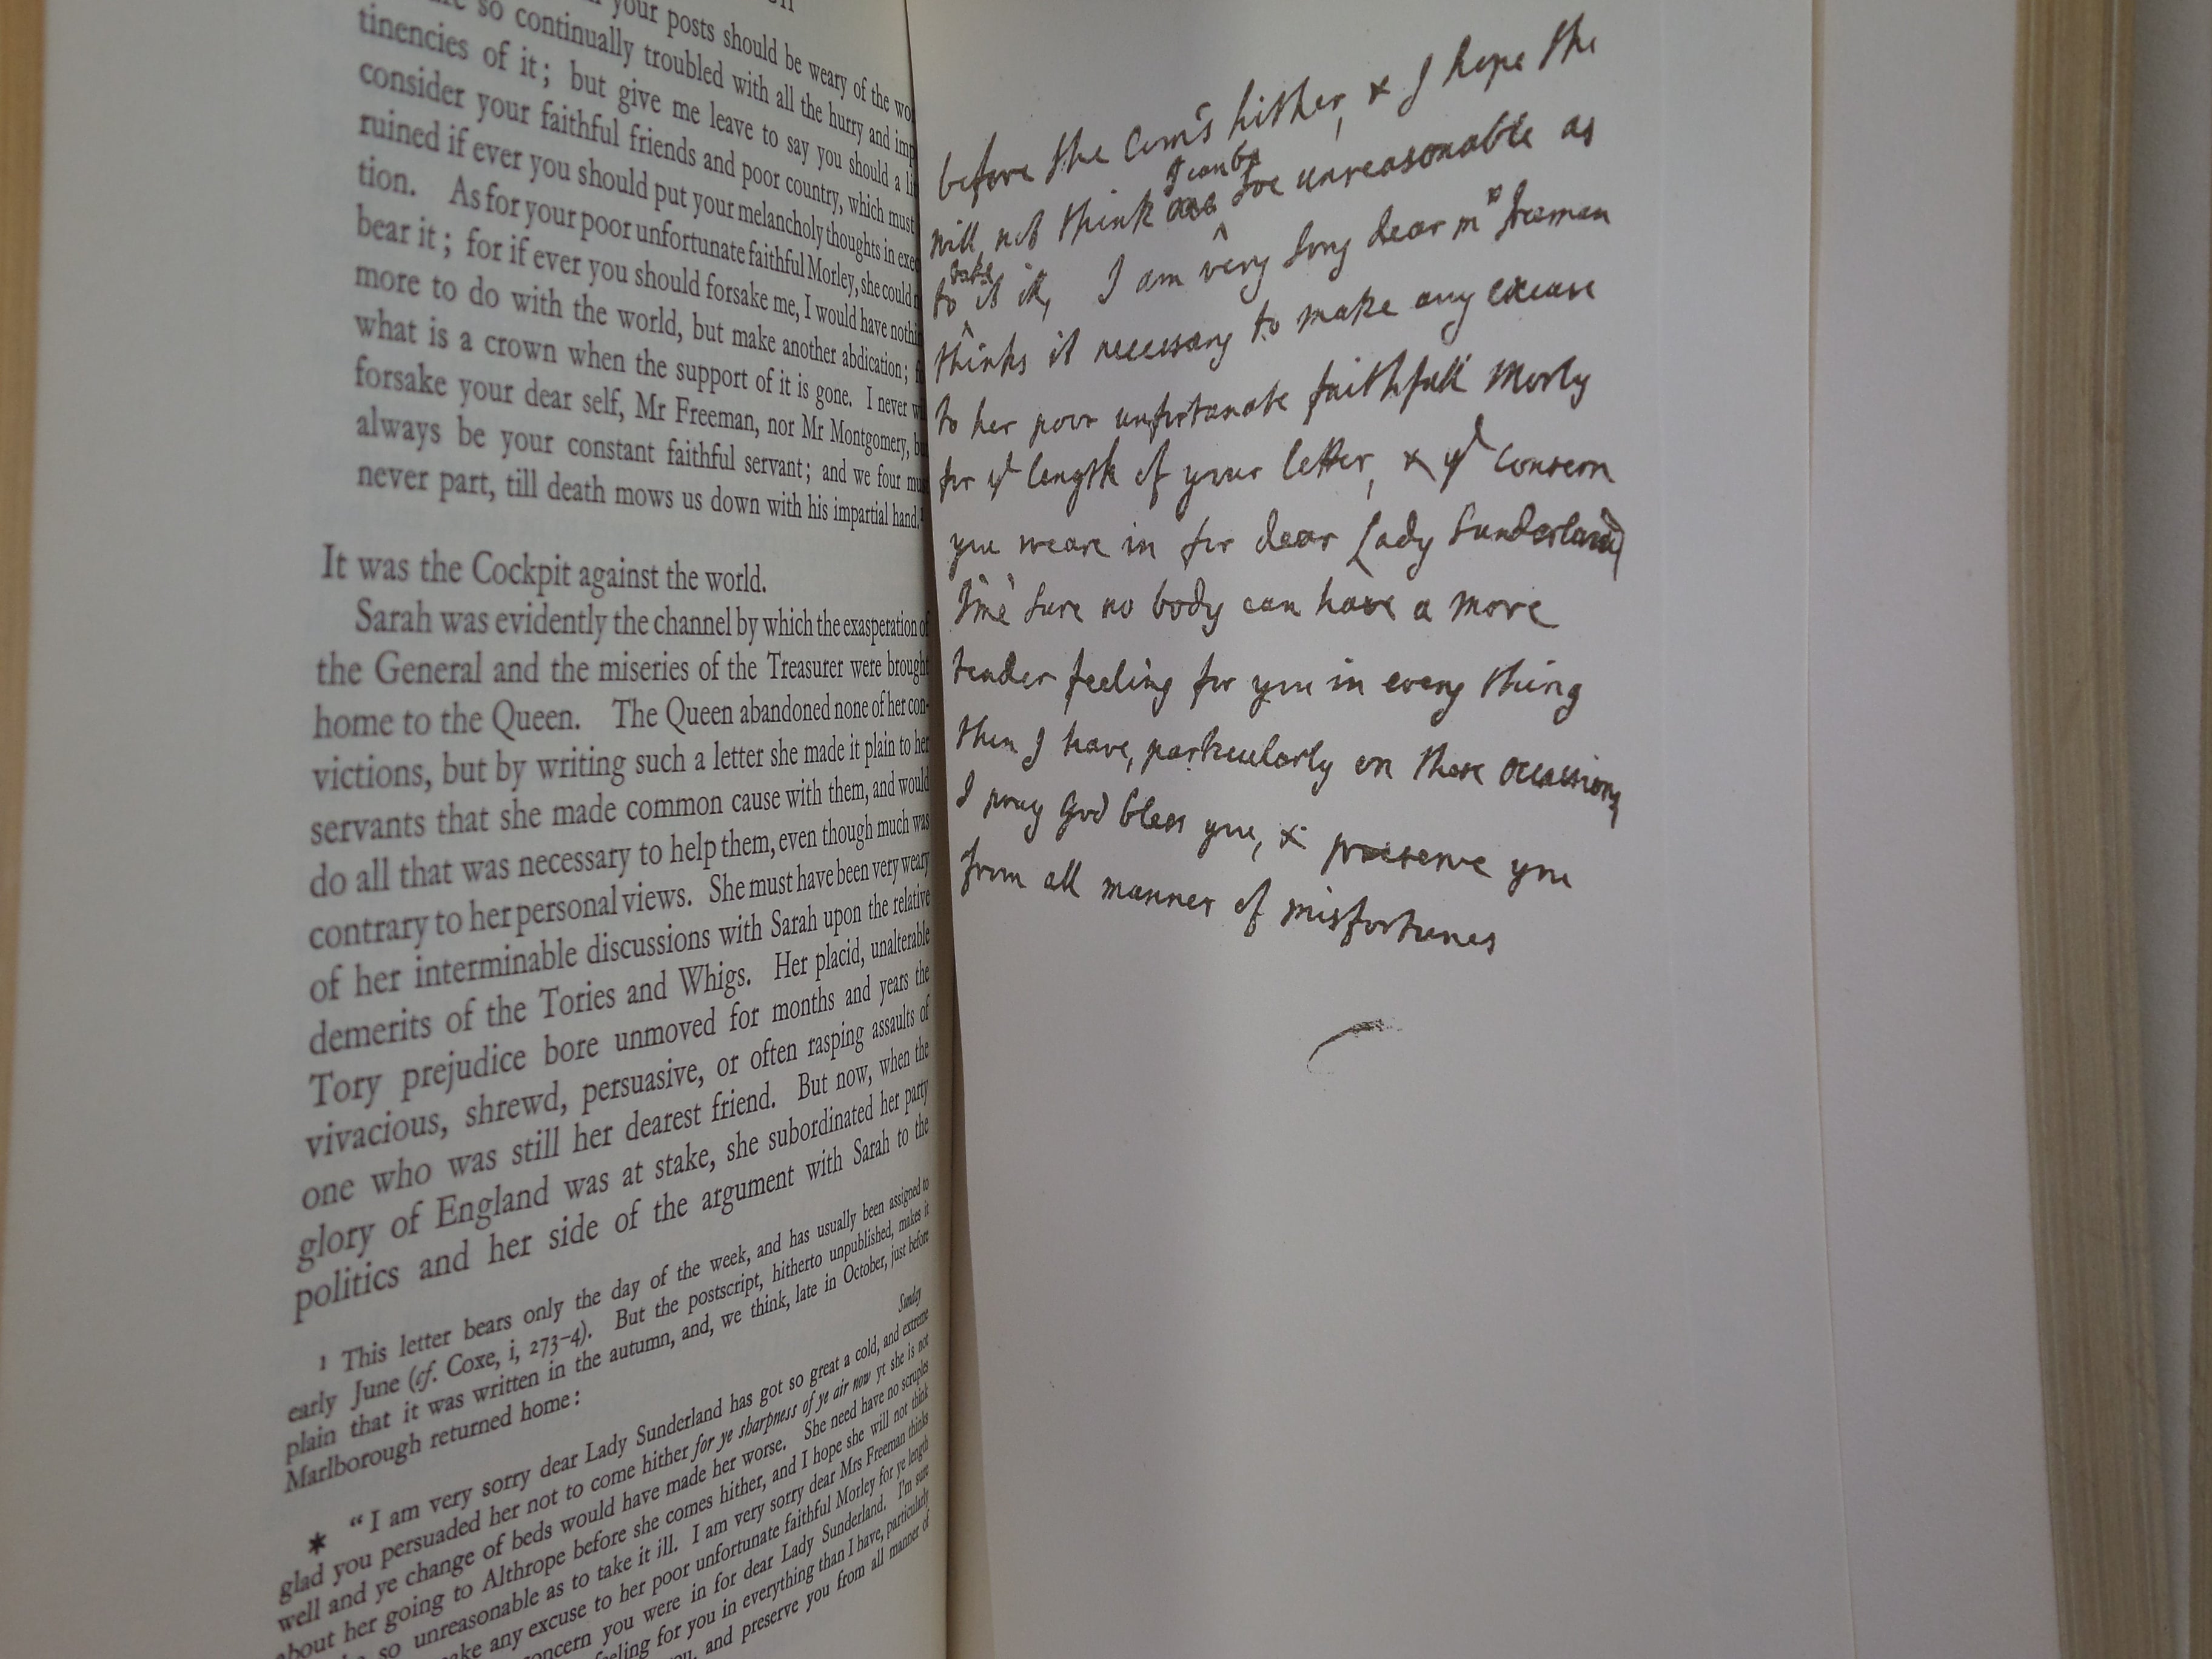 your posts should be weary of the
so continually troubled with all the hurry and
tinencies of it; but give me leave to say you should a
consider your faithful friends and poor country, which must
ruined if ever you should put your melancholy thoughts in
tion. As for your poor unfortunate faithful Morley, she could
bear it; for if ever you should forsake me, I would have
more to do with the world, but make another abdication;
what is a crown when the support of it is gone. I never
forsake your dear self, Mr Freeman, nor Mr Montgomery,
always be your constant faithful servant; and we four
never part, till death mows us down with his impartial hand.¹
It was the Cockpit against the world.
Sarah was evidently the channel by which the exasperation of
the General and the miseries of the Treasurer were brought
home to the Queen. The Queen abandoned none of her con-
victions, but by writing such a letter she made it plain to her
servants that she made common cause with them, and would
do all that was necessary to help them, even though much was
contrary to her personal views. She must have been very weary
of her interminable discussions with Sarah upon the relative
demerits of the Tories and Whigs. Her placid, unalterable
Tory prejudice bore unmoved for months and years the
vivacious, shrewd, persuasive, or often rasping assaults of
one who was still her dearest friend. But now, when the
glory of England was at stake, she subordinated her party
politics and her side of the argument with Sarah to the
¹ This letter bears only the day of the week, and has usually been assigned to
early June (cf. Coxe, i, 273–4). But the postscript, hitherto unpublished, makes it
plain that it was written in the autumn, and, we think, late in October, just before
Marlborough returned home:
Sunday
* "I am very sorry dear Lady Sunderland has got so great a cold, and extreme
glad you persuaded her not to come hither for ye sharpness of ye air now yt she is not
well and ye change of beds would have made her worse. She need have no scruples
about her going to Althrope before she comes hither, and I hope she will not think
so unreasonable as to take it ill. I am very sorry dear Mrs Freeman thinks
any excuse to her poor unfortunate faithful Morley for ye length
concern you were in for dear Lady Sunderland. I'm sure
feeling for you in everything than I have, particularly
and preserve you from all manner of
before the Com's hither, & I hope the
will not think I can be soe unreasonable as
to take it ill, I am very sory dear mrs freeman
thinks it necessary to make any excuse
to her poor unfortunate faithfull Morly
for ye length of your letter, & ye consern
you weare in for dear Lady Sunderland,
I'me sure no body can have a more
tender feeling for you in every thing
then I have, particularly on these occassions,
I pray God bless you, & preserve you
from all manner of misfortunes